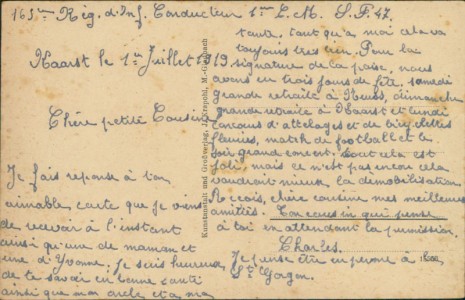 165ème Rég. d'Inf. Conducteur 1ère C.M. S.P. 47.
Kaarst le 1er Juillet 1919
Chère petite Cousine
Je fais réponse à ton
aimable carte que je viens
de recevoir à l'instant
ainsi qu'une de maman et
une d'Yvonne. Je suis heureux
de te savoir en bonne santé
ainsi que mon oncle et ma
tante, tant qu'à moi cela va
toujours très bien. Pour la
signature de la paix, nous
avons eu trois jours de fête, samedi
grande retraite à Neuss, dimanche
grande retraite à Kaarst et lundi
concours d'attelages et de bicyclettes
fleuries, match de football et le
soir grand concert. Tout cela est
joli, mais ce n'est pas encore cela
vaudrait mieux la démobilisation
Reçois, chère cousine mes meilleures
amitiés. Ton cousin qui pense
à toi en attendant la permission.
Charles.
Je pense être en perme à la
St
Kunstanstalt und Großverlag, M.-Gladbach